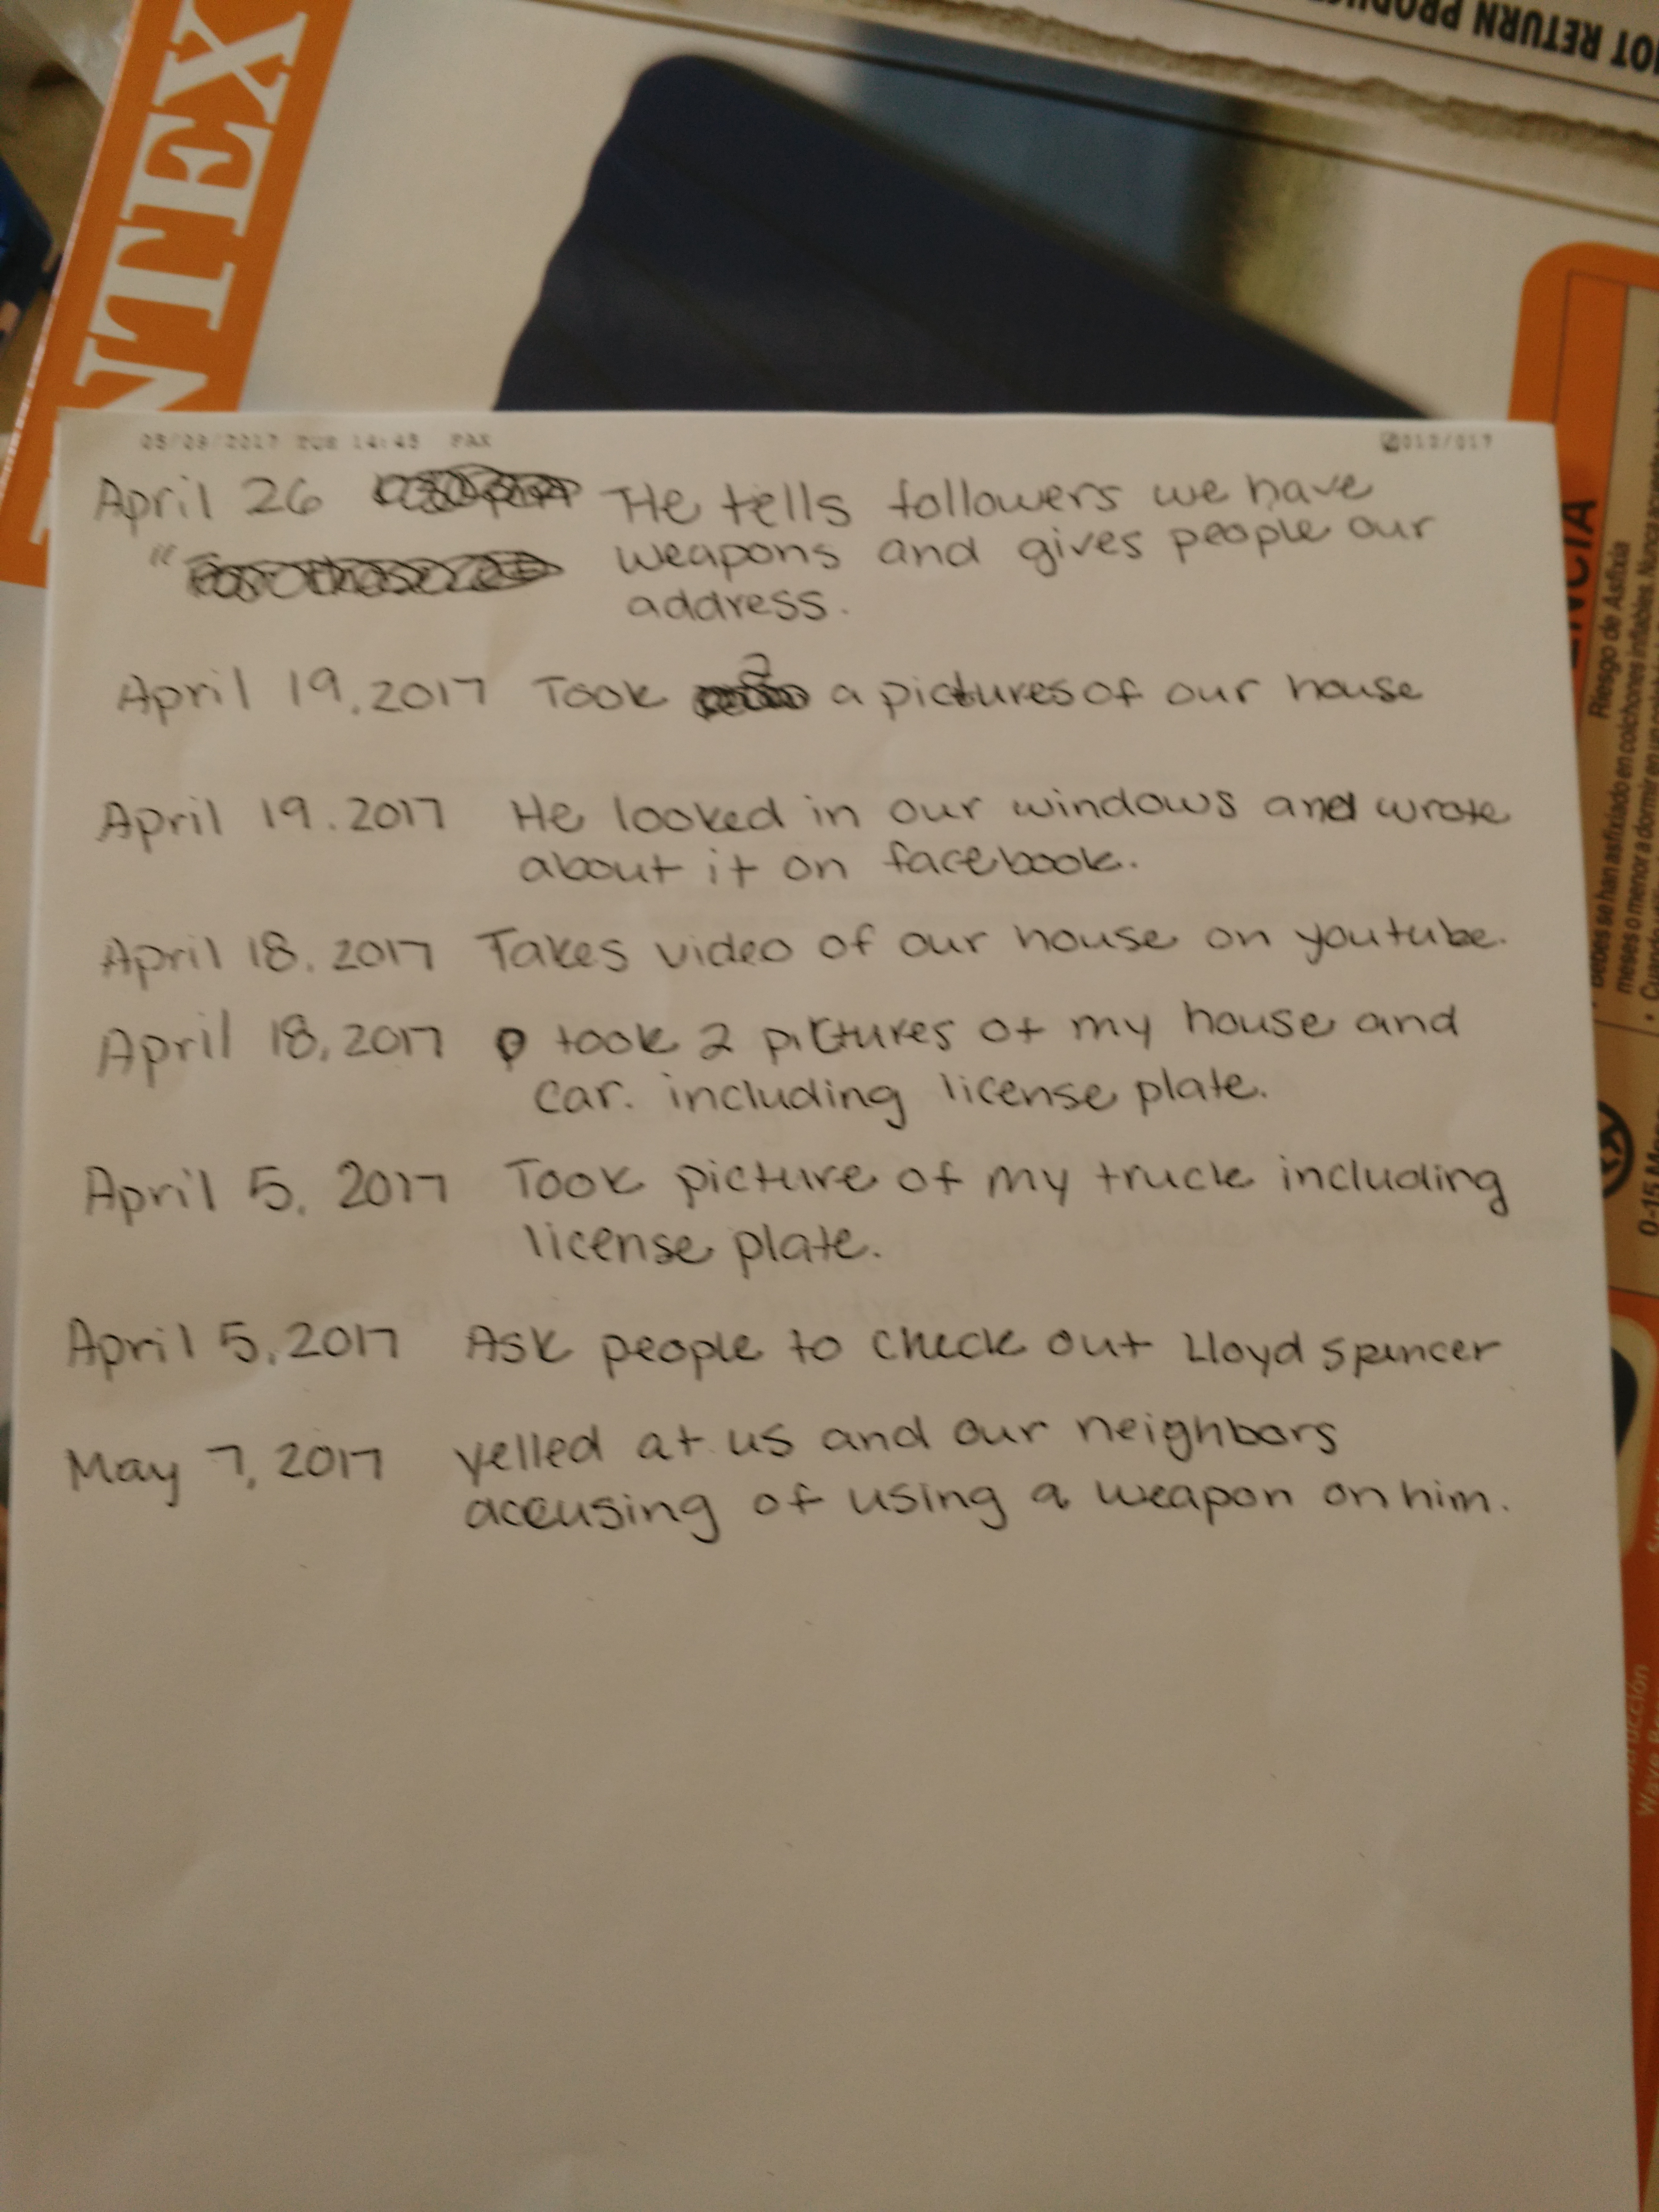 NOT RETURN PRODUC
NTEX
ENCIA
Riesgo de Asfixia
bebés se han asfixiado en colchones inflables. Nunca
meses o menor a dormir en un
0-15 M
05/09/2017 TUE 14:45 FAX
012/017
April 26 He tells followers we have
" weapons and gives people our
address.
2
April 19, 2017 Took a pictures of our house
April 19. 2017 He looked in our windows and wrote
about it on facebook.
April 18. 2017 Takes video of our house on youtube.
April 18, 2017 took 2 pictures of my house and
car. including license plate.
April 5, 2017 Took picture of my truck including
license plate.
April 5, 2017 Ask people to check out Lloyd Spencer
May 7, 2017 yelled at us and our neighbors
accusing of using a weapon on him.